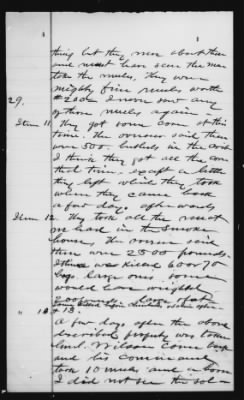 thing but they were about there
and must have seen the men
take the mules. They were
mighty fine mules worth
$250 I never saw any
of those mules again
29.
Item 11. They got some corn at this
time. The overseer said there
was 500. bushels in the crib
I think they got all the corn
that time. except a little
they left which they took
when they came back
a few days afterwards
Item 12. They took all the meat
we had in the smoke
house, the overseer said
there were 2500 pounds.
I think we killed 60 or 70
hogs. large ones some
would have weighed
200 pounds
" 10 & 13.
A few days after the above
described property was taken
Genl. Wilson come back
and his command
took 10 mules and a horse
I did not see the sol-